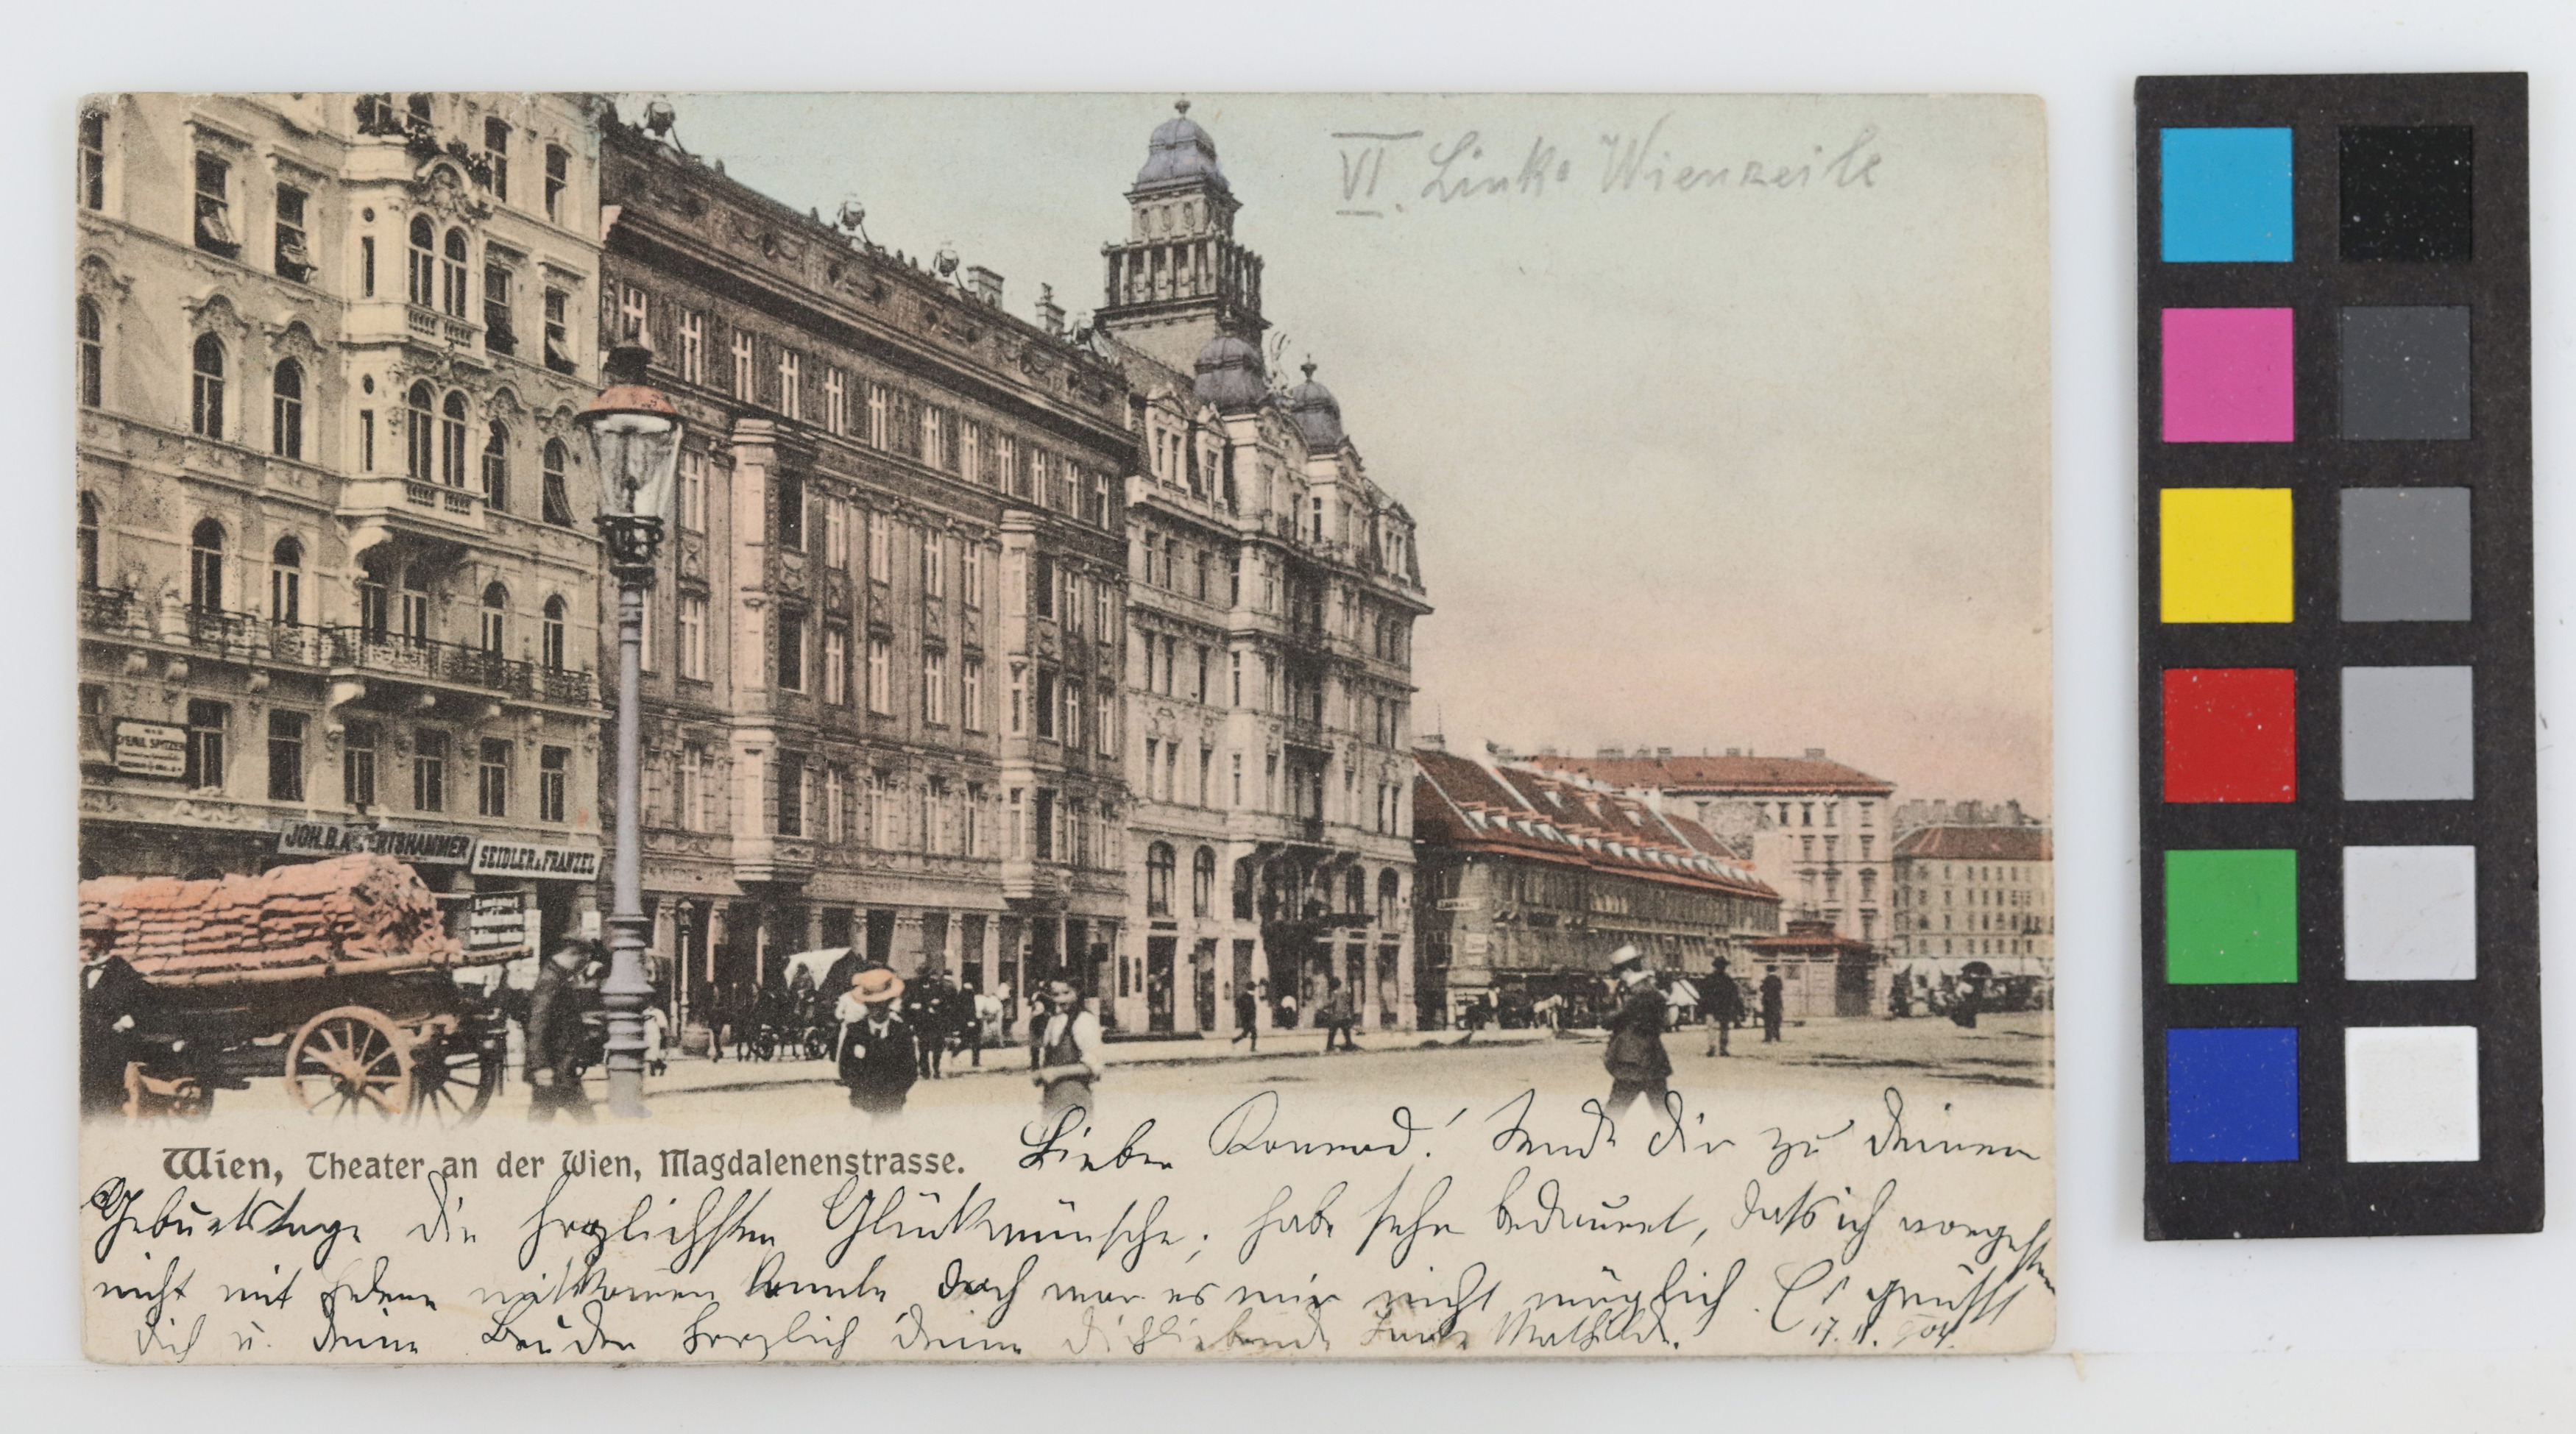 VI. Linke Wienzeile
Dr EMIL SPITZER
JOH. B. A
SEIDLER & FRANZEL
Wien, Theater an der Wien, Magdalenenstrasse.
Lieber Konrad! Sende dir zu deinem
Geburtstage die herzlichsten Glückwünsche; habe sehr bedauert, daß ich vorgestern
nicht mit mitkommen konnte doch war es mir nicht möglich. Es grüßt
dich u. deine Brüder herzlich deine dichliebende Tante Mathilde. 17. 11. 904.